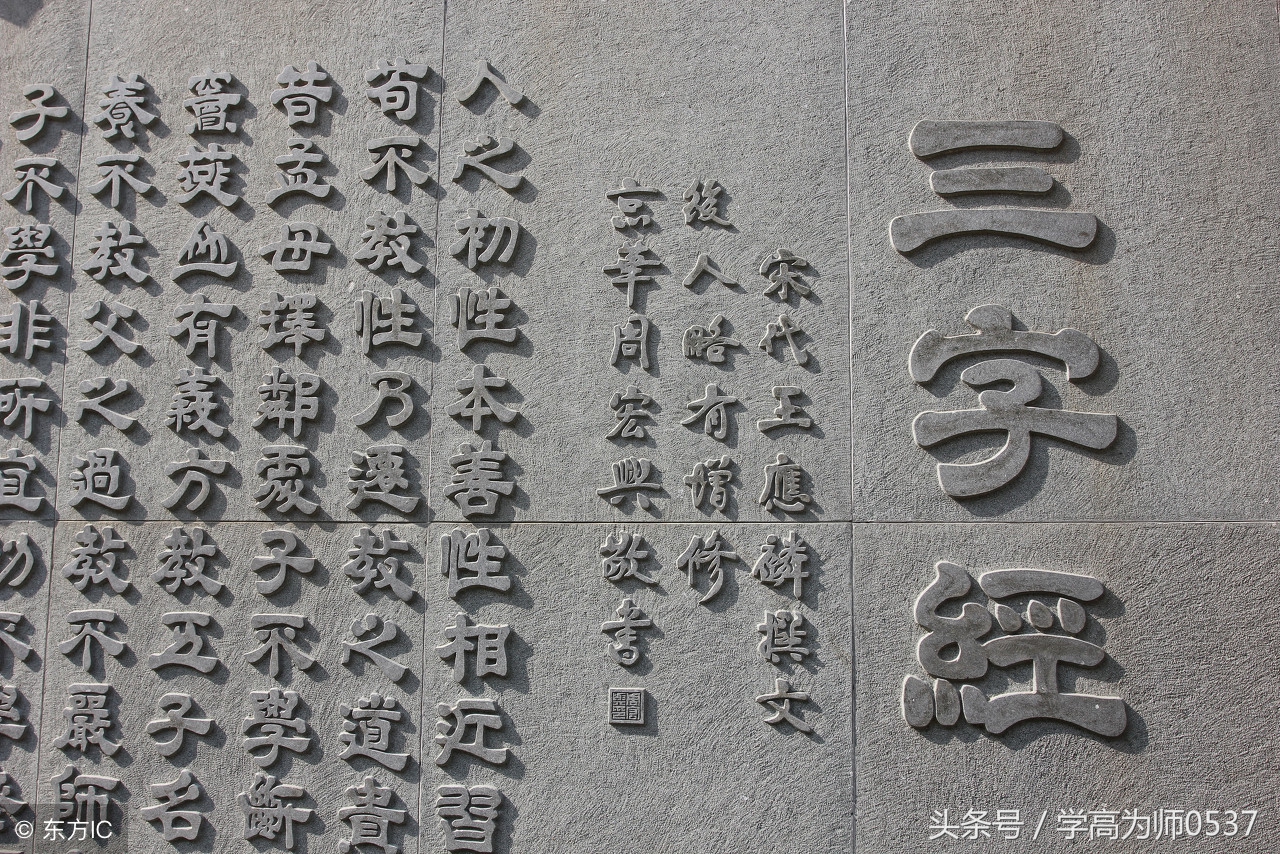 三字經
宋代王應磷撰文
後人略有增修
京華周宏興敬書
人之初性本善性相近習
苟不教性乃遷教之道貴
昔孟母擇鄰處子不學斷
竇燕山有義方教五子名
養不教父之過教不嚴師
子不學非所宜幼不學
© 东方IC
头条号 / 学高为师0537